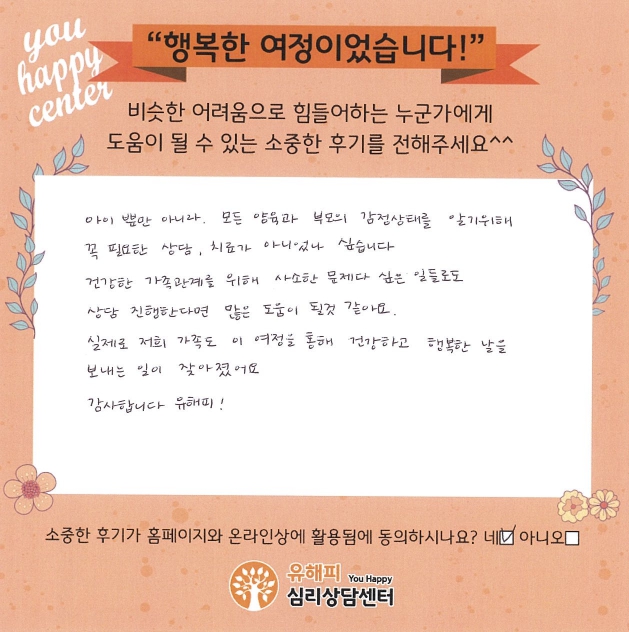 you
happy
center
“행복한 여정이었습니다!”
비슷한 어려움으로 힘들어하는 누군가에게
도움이 될 수 있는 소중한 후기를 전해주세요^^
아이 뿐만 아니라. 모든 양육과 부모의 감정상태를 알기위해
꼭 필요한 상담, 치료가 아니었나 싶습니다
건강한 가족관계를 위해 사소한 문제다 싶은 일들로도
상담 진행한다면 많은 도움이 될것 같아요.
실제로 저희 가족도 이 여정을 통해 건강하고 행복한 날을
보내는 일이 잦아졌어요
감사합니다 유해피!
소중한 후기가 홈페이지와 온라인상에 활용됨에 동의하시나요? 네☑ 아니오☐
유해피 You Happy
심리상담센터